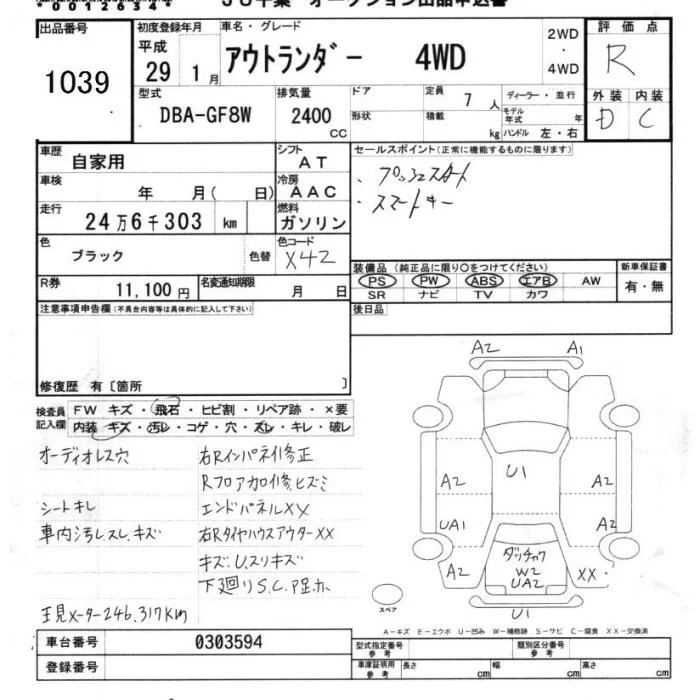 00126344
JU千葉 オークション出品申込書
出品番号
1039
初度登録年月
平成
29 1月
車名・グレード
アウトランダー 4WD
2WD
・
4WD
評価点
R
外装 内装
D C
型式
DBA-GF8W
排気量
2400
CC
ドア
形状
定員 7人
積載 kg
ディーラー・並行
モデル年式 年
ハンドル 左・右
車歴
自家用
シフト
AT
車検
年 月( 日)
冷房
AAC
走行
24万6千303 km
燃料
ガソリン
色
ブラック
色替
色コード
X42
R券
11,100円
名変通知期限
月 日
セールスポイント(正常に機能するものに限ります)
・プッシュスタート
・スマートキー
装備品(純正品に限り○をつけてください)
PS PW ABS エアB AW
SR ナビ TV カワ
新車保証書
有・無
注意事項申告欄(不具合内容等は具体的に記入して下さい)
修復歴 有〔箇所 〕
後日品
検査員
記入欄
FW キズ・飛石・ヒビ割・リペア跡・×要
内装 キズ・汚レ・コゲ・穴・スレ・キレ・破レ
オーディオレス穴
シートキレ
車内汚レスレ、キズ
現メーター246,317Km
右Rインパネ修正
Rフロアカロ修、ヒズミ
エンドパネルXX
右RタイヤハウスアウターXX
キズ、U、スリキズ
下廻りS.C.
A2 A1
U1
A2 A2
UA1 A2
A2
ダッチャク
W2
UA2
XX
U1
スペア
A-キズ E-エクボ U-凹み W-補修跡 S-サビ C-腐食 XX-交換済
車台番号
0303594
登録番号
型式指定番号
参考
類別区分番号
参考
車庫証明用
参考
長さ cm 幅 cm 高さ cm